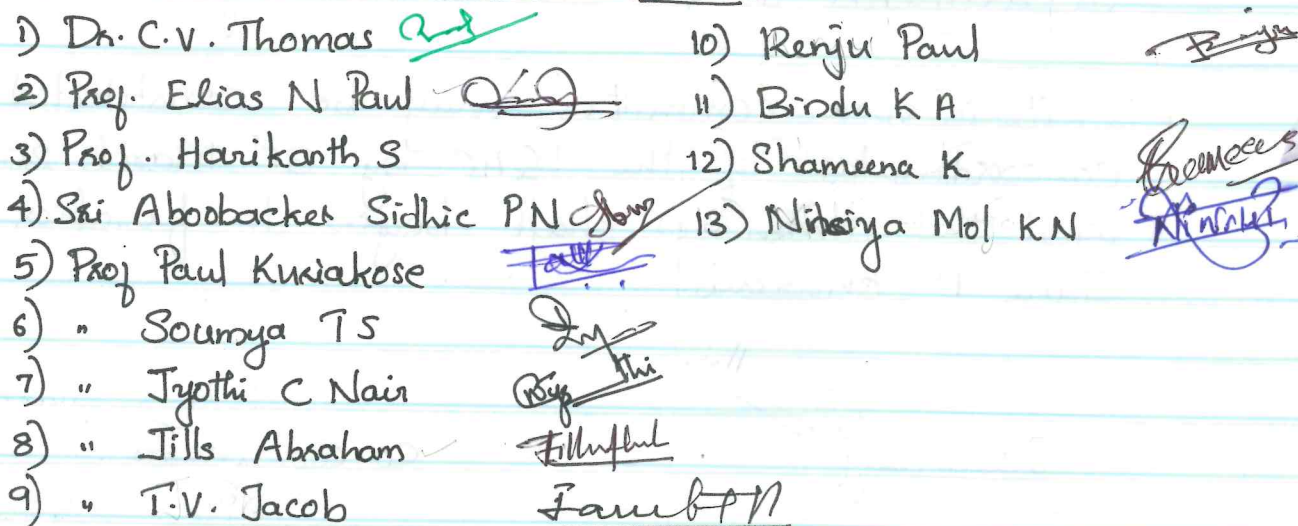 1) Dr. C.V. Thomas
2) Prof. Elias N Paul
3) Prof. Harikanth S
4) Sri Aboobacker Sidhic PN
5) Prof Paul Kuriakose
6) " Soumya T S
7) " Jyothi C Nair
8) " Jills Abraham
9) " T.V. Jacob
10) Renju Paul
11) Bindu K A
12) Shameena K
13) Mol KN